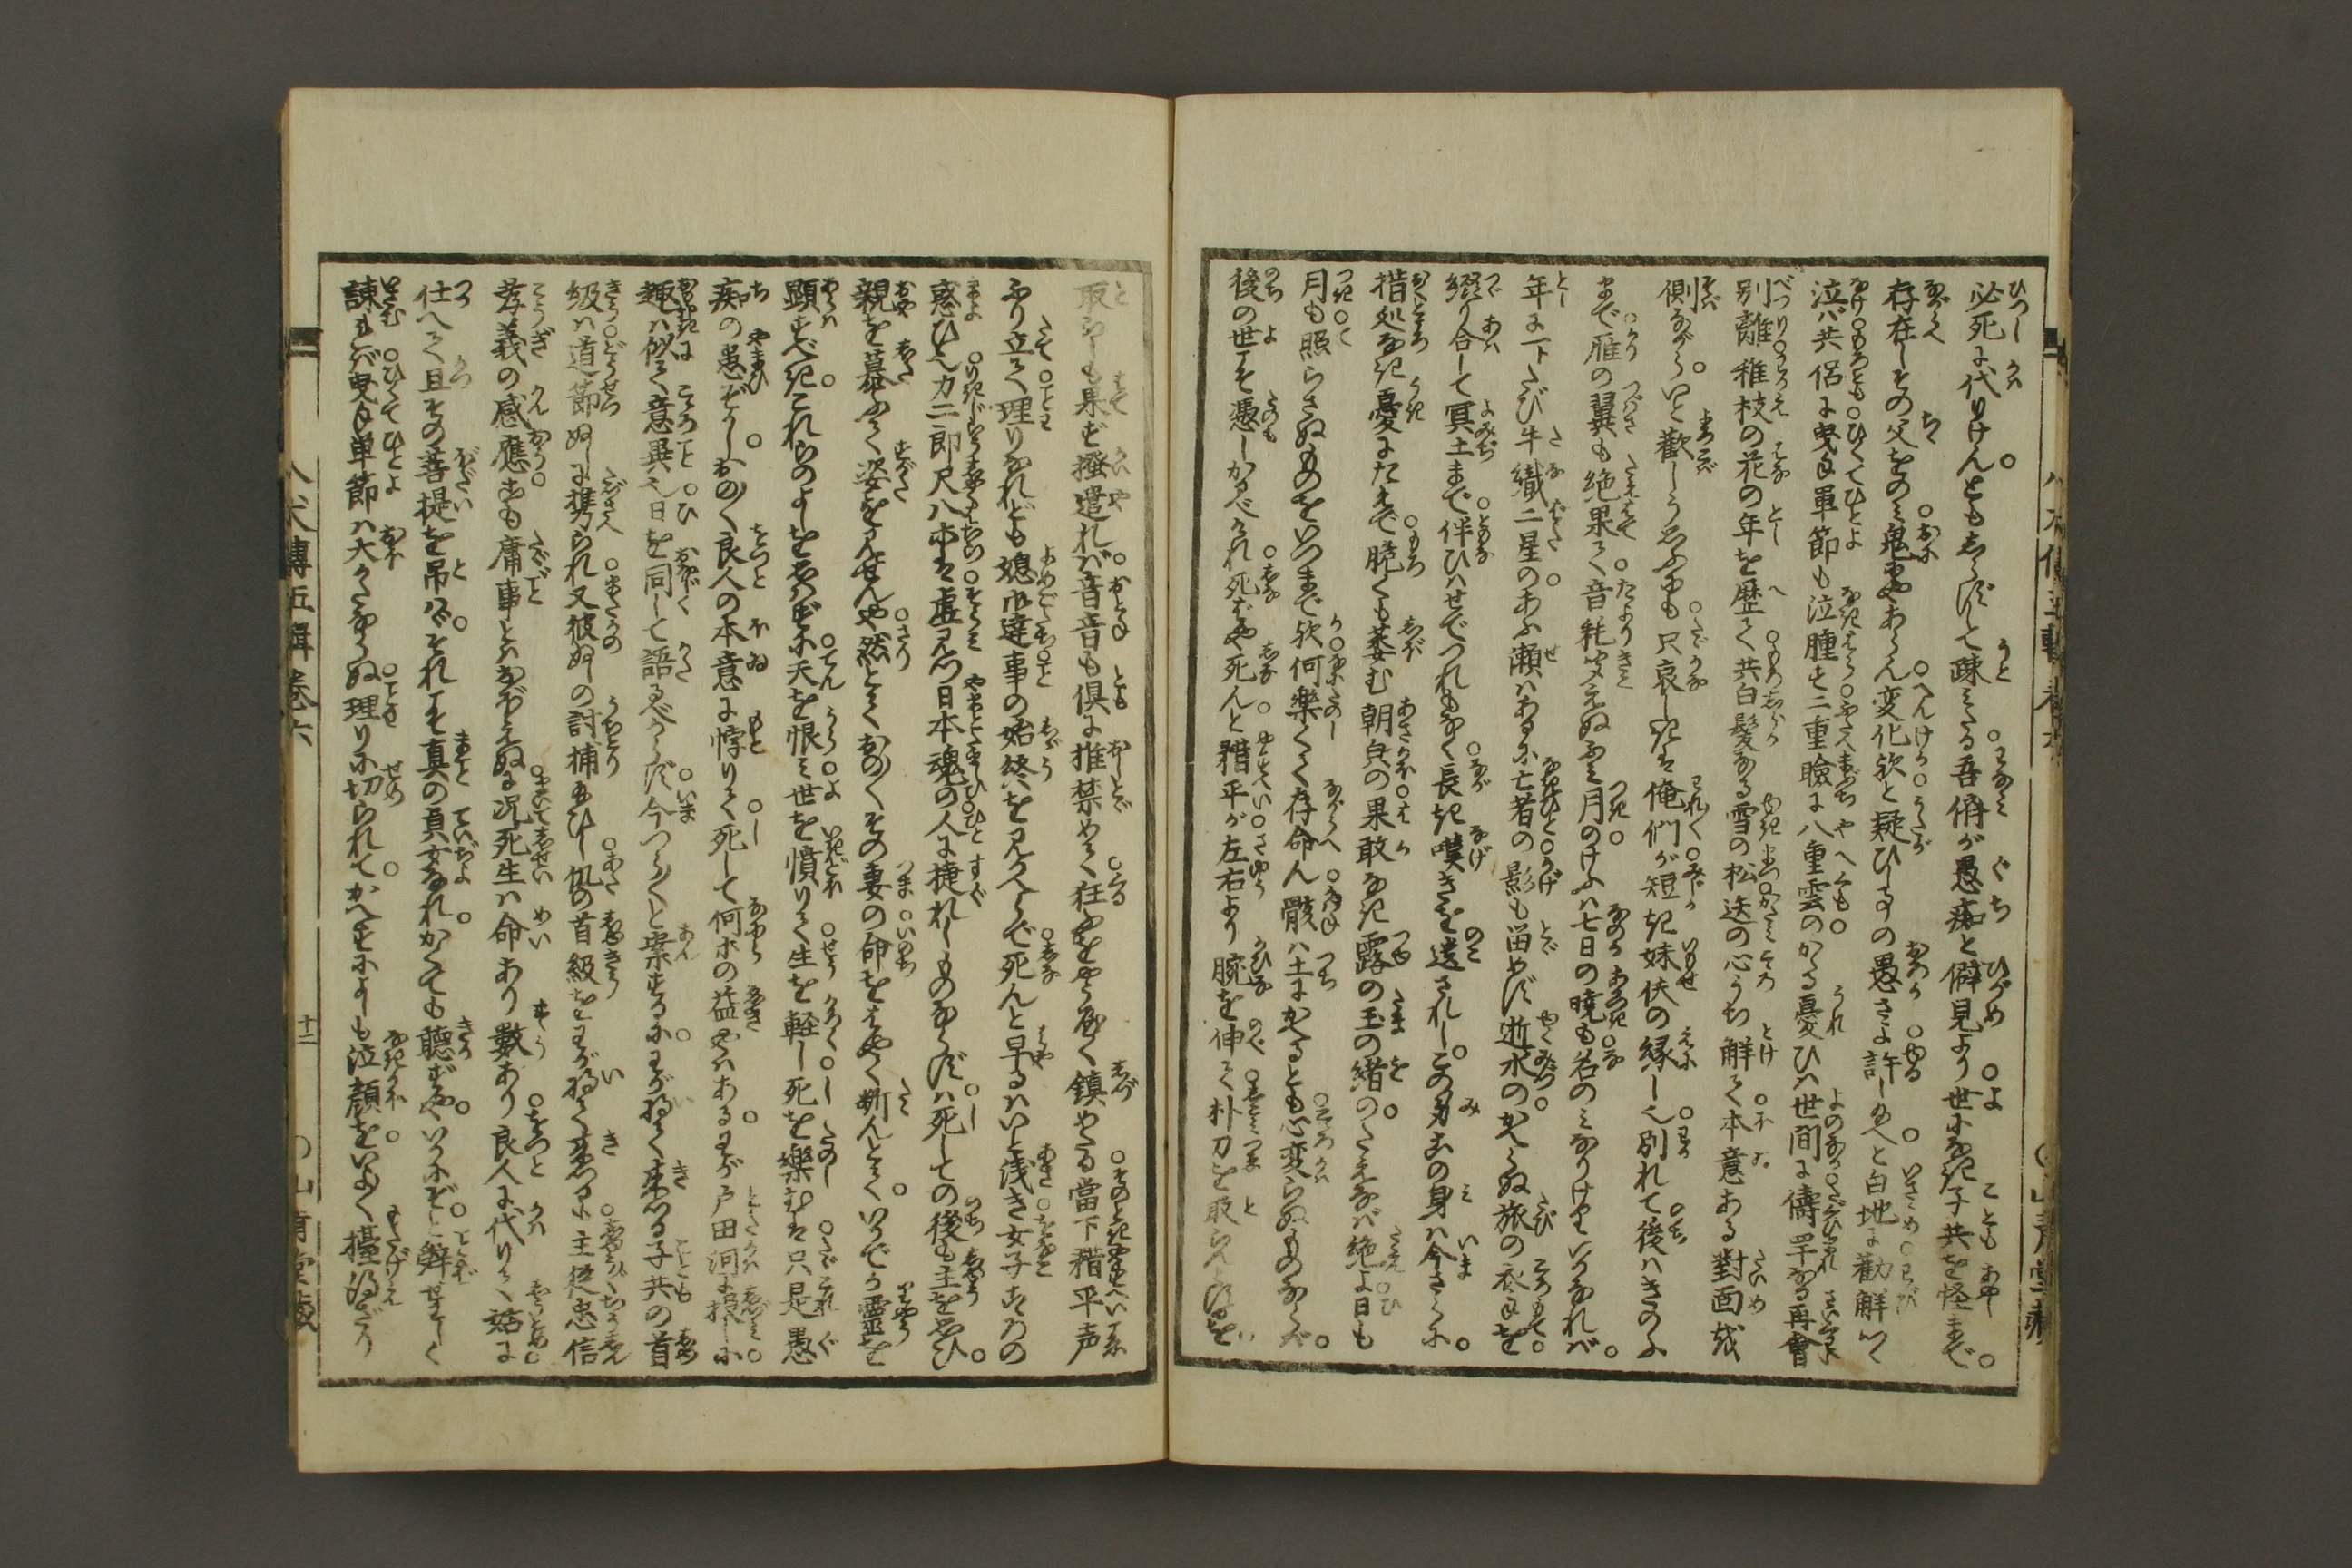 必死に代りけん。ともしらずして疎みたる吾儕が愚痴と僻見より世になき子共を怪むまで。
存在しその父をのみ鬼にやあらん変化歟と疑ひしその愚さよ許し給へと白地に勧解つゝ
泣ば共侶に曳手單節も泣腫す二重瞼に八重雲のかゝる憂ひは世間に儔罕なる再會
別離稚枝の花の年を歴て共白髪なる雪の松迭の心うち解て本意ある對面を
側ながら。いと歓しう思ふにも只哀しきは俺們が短き妹伕の縁し也別れて後はきのふ
まで雁の翼も絶果て音耗聞えぬふみ月のけふは七日の暁も名のみなりけりいかなれば
年に一トたび牛織二星のあふ瀬はあるに亡者の影も留めず逝水のかへらぬ旅の衣手を
綴り合して冥土まで伴ひはせでつれもなく長き嘆きを遺されし。この身は今さらに。
措処なき憂にたえで脆くも萎む朝㒵の果敢なき露の玉の緒の。たえなば絶よ日も
月も照らさぬものをいつまで歟何樂くて存命ん骸は土にかへるとも心変らぬものならば。
後の世こそ憑しかるべけれ死なばや死んと䂺平が左右より腕を伸て朴刀を取らんとするを
取らしも果ず撥遣れば音音も倶に推禁めて狂ふをやうやく鎮めたる當下䂺平声
ふり立て理りなれども媳們達事の始終を見かへらで死んと早るはいと浅き女子こゝろの
惑ひ也力二郎尺八等は虚見つ日本魂の人に捷れしものならずは死しての後も主を思ひ
親を慕ふて姿を見せんや然とておの〳〵その妻の命をはやく断んとていかでか霊を
顕すべき。これらのよしを思はずに天を恨み世を憤りて生を軽し死を樂むは只是愚
痴の愚ぞかし。おの〳〵良人の本意に悖りて死して何等の益やはある。わが戸田河に投しに
趣は似て意異也日を同して語るべからず今つら〳〵と案ずるにわが携て来つる子共の首
級は道節ぬしに携られ又彼ぬしの討捕給ひし仇の首級をわが携て来つるも主従忠信
孝義の感應尤も庸事とはおぼえぬに况死生は命あり數あり良人に代りて姑に
仕へて且その菩提を吊はゞそれこそ真の貞女なれかくても聴ずやいかにぞやと辞せはしく
諫れば曳手単節は大かたならぬ理りに切られて。かへすによしも泣顔をいよゝ擡得ざり
八犬傳五輯巻六
十二
〇山青堂藏